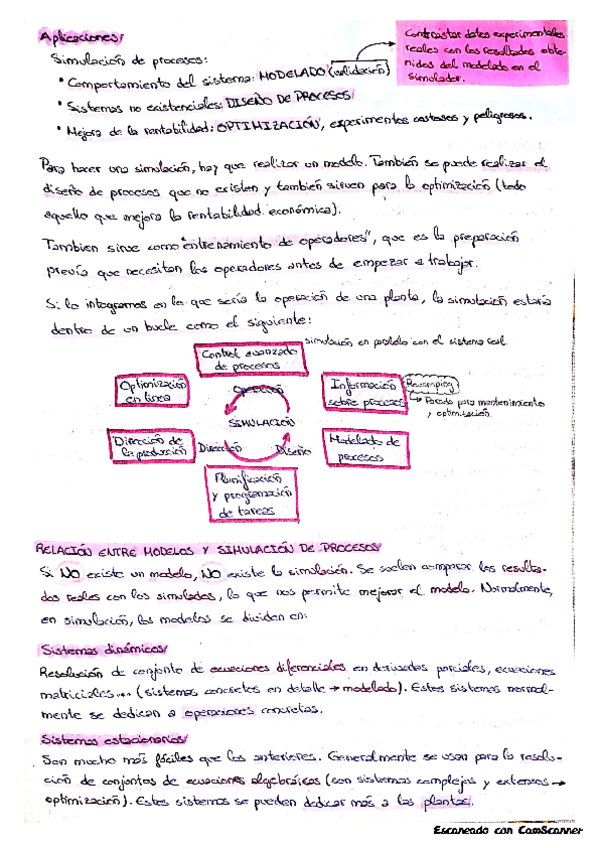 Aplicaciones/
Contrastar datos experimentales
reales con los resultados obte-
nidos del modelado en el
simulador.
Simulación de procesos:
• Comportamiento del sistema: MODELADO (validación)
• Sistemas no existenciales: DISEÑO DE PROCESOS
• Mejora de la rentabilidad: OPTIMIZACIÓN, experimentos costosos y peligrosos.
Para hacer una simulación, hay que realizar un modelo. También se puede realizar el
diseño de procesos que no existen y también sirven para la optimización (todo
aquello que mejora la rentabilidad económica).
Tambien sirve como "entrenamiento de operadores", que es la preparación
previa que necesitan los operadores antes de empezar a trabajar.
Si lo integramos en lo que sería la operación de una planta, la simulación estaría
dentro de un bucle como el siguiente:
simulación en paralelo con el sistema real
Control avanzado
de procesos
Optimización
en línea
Operación
Información
sobre procesos
Revamping
→ Parada para mantenimiento
y optimización
SIMULACIÓN
Dirección de
la producción
Dirección
Diseño
Modelado de
procesos
Planificación
y programación
de tareas
RELACIÓN ENTRE MODELOS Y SIMULACIÓN DE PROCESOS
Si NO existe un modelo, NO existe la simulación. Se suelen comparar los resulta-
dos reales con los simulados, lo que nos permite mejorar el modelo. Normalmente,
en simulación, los modelos se dividen en:
Sistemas dinámicos/
Resolución de conjunto de ecuaciones diferenciales en derivadas parciales, ecuaciones
matriciales... (sistemas concretos en detalle → modelado). Estos sistemas normal-
mente se dedican a operaciones concretas.
Sistemas estacionarios/
Son mucho más fáciles que los anteriores. Generalmente se usan para la resolu-
ción de conjuntos de ecuaciones algebráicas (con sistemas complejos y extensos →
optimización). Estos sistemas se pueden dedicar más a las plantas.
Escaneado con CamScanner